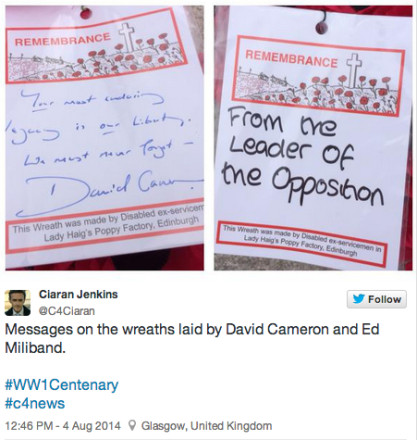 REMEMBRANCE
Your most enduring
legacy is our liberty.
We must never forget -
David Cameron
This Wreath was made by Disabled ex-servicemen
Lady Haig's Poppy Factory, Edinburgh
REMEMBRANCE
From the
Leader of
the Opposition
This Wreath was made by Disabled ex-servicemen in
Lady Haig's Poppy Factory, Edinburgh
Ciaran Jenkins
@C4Ciaran
Follow
Messages on the wreaths laid by David Cameron and Ed
Miliband.
#WW1Centenary
#c4news
12:46 PM - 4 Aug 2014 Glasgow, United Kingdom